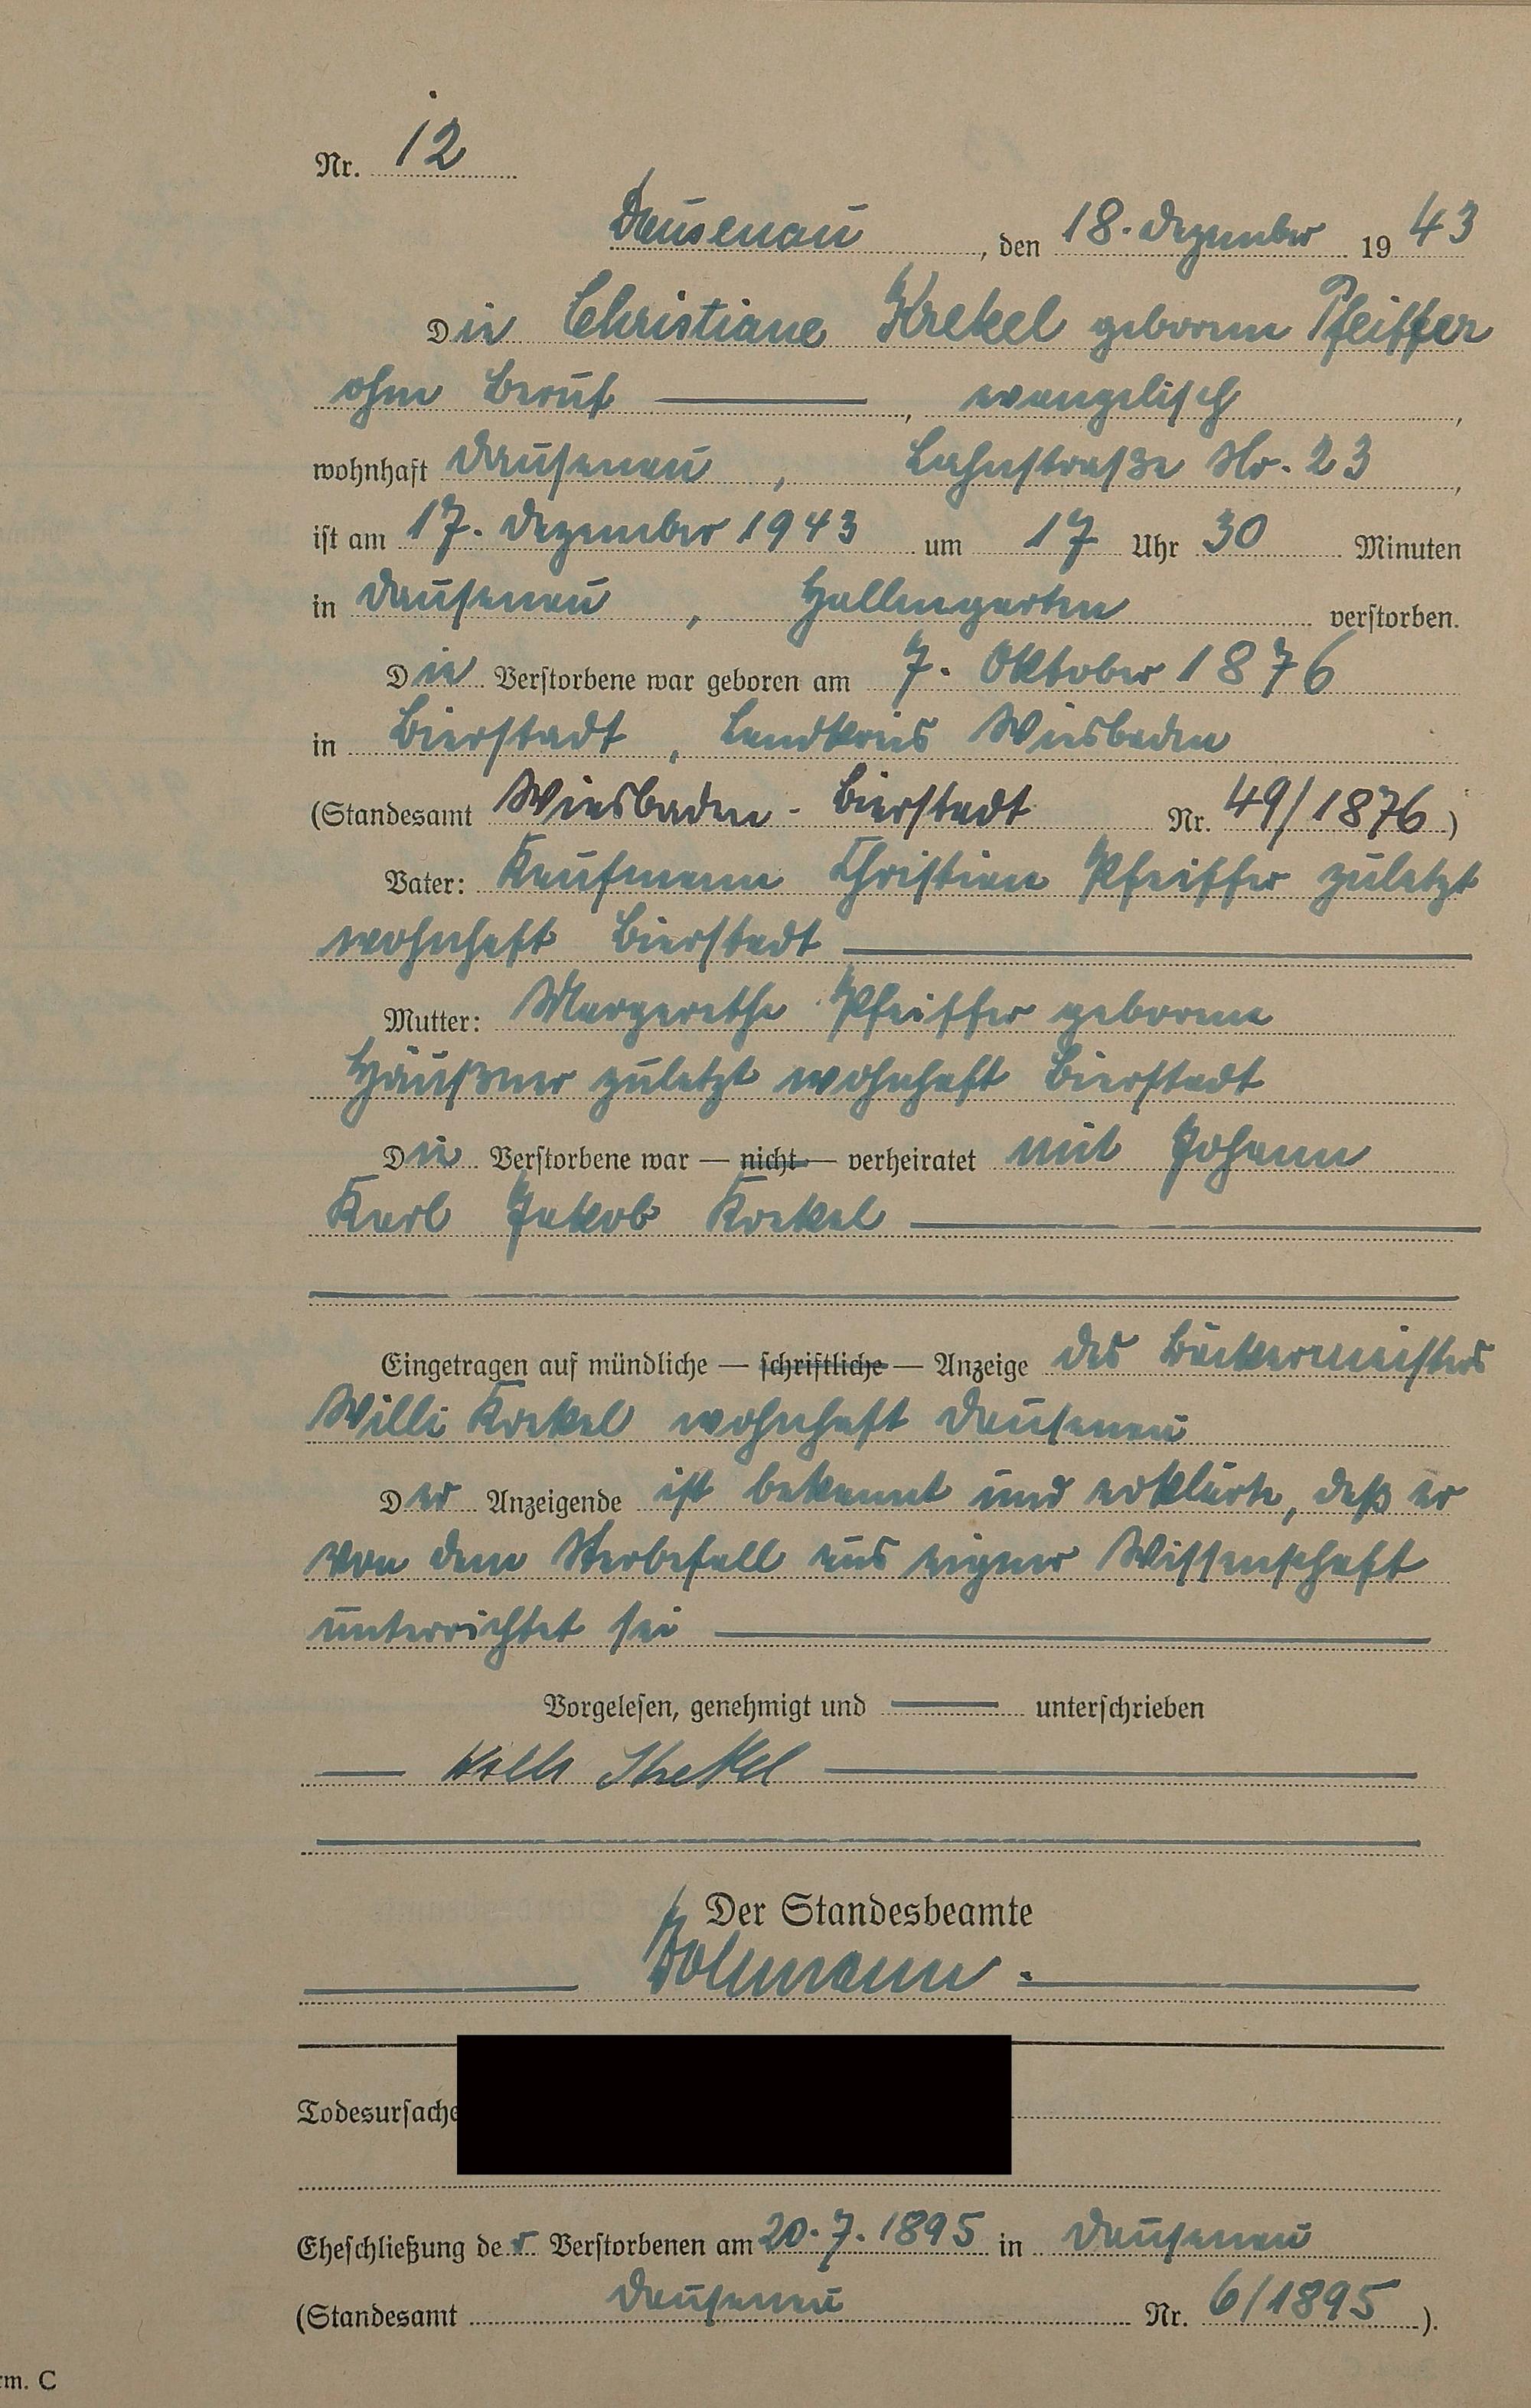 Nr. 12
Dausenau, den 18. Dezember 1943
Die Christiane Krekel geborene Pfeiffer
ohne Beruf, evangelisch,
wohnhaft Dausenau, Lahnstraße Nr. 23,
ist am 17. Dezember 1943 um 17 Uhr 30 Minuten
in Dausenau, Hallengarten verstorben.
Die Verstorbene war geboren am 7. Oktober 1876
in Bierstadt, Landkreis Wiesbaden
(Standesamt Wiesbaden-Bierstadt Nr. 49/1876)
Vater: Kaufmann Christian Pfeiffer zuletzt
wohnhaft Bierstadt
Mutter: Margarethe Pfeiffer geborene
Häußner zuletzt wohnhaft Bierstadt
Die Verstorbene war — nicht — verheiratet mit Johann
Karl Jakob Krekel
Eingetragen auf mündliche — schriftliche — Anzeige des Bäckermeisters
Willi Krekel wohnhaft Dausenau
Der Anzeigende ist bekannt und erklärte, daß er
von dem Sterbefall aus eigner Wissenschaft
unterrichtet sei
Vorgelesen, genehmigt und unterschrieben
Willi Krekel
Der Standesbeamte
Todesursache
Eheschließung der Verstorbenen am 20.7.1895 in Dausenau
(Standesamt Dausenau Nr. 6/1895).
rm. C